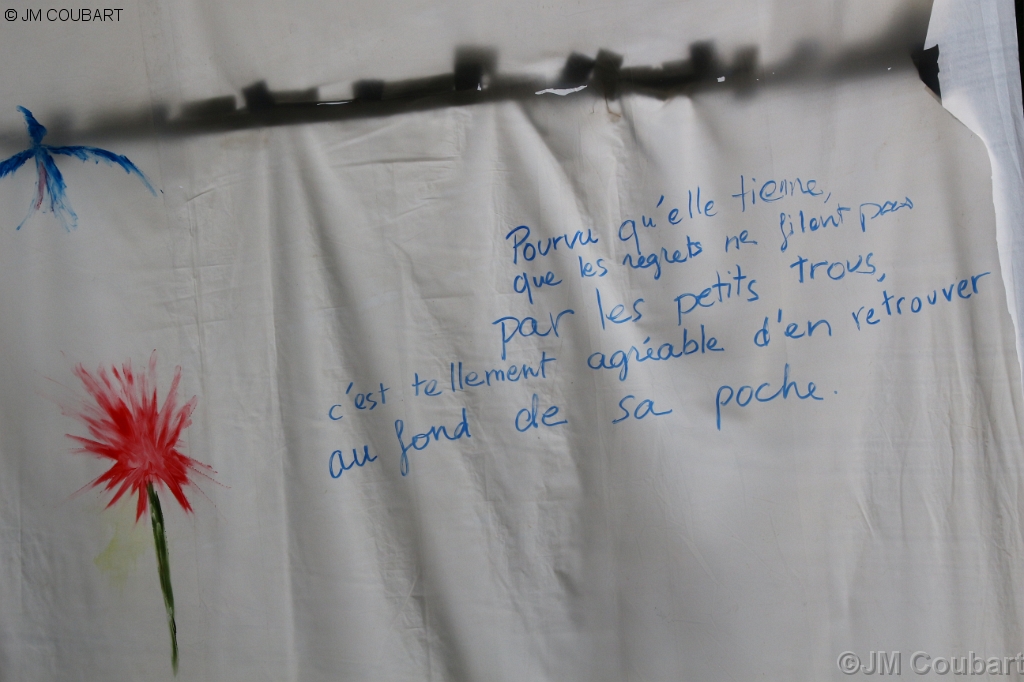 © JM COUBART
Pourvu qu'elle tienne,
que les regrets ne filent pas
par les petits trous,
c'est tellement agréable d'en retrouver
au fond de sa poche.
©JM Coubart